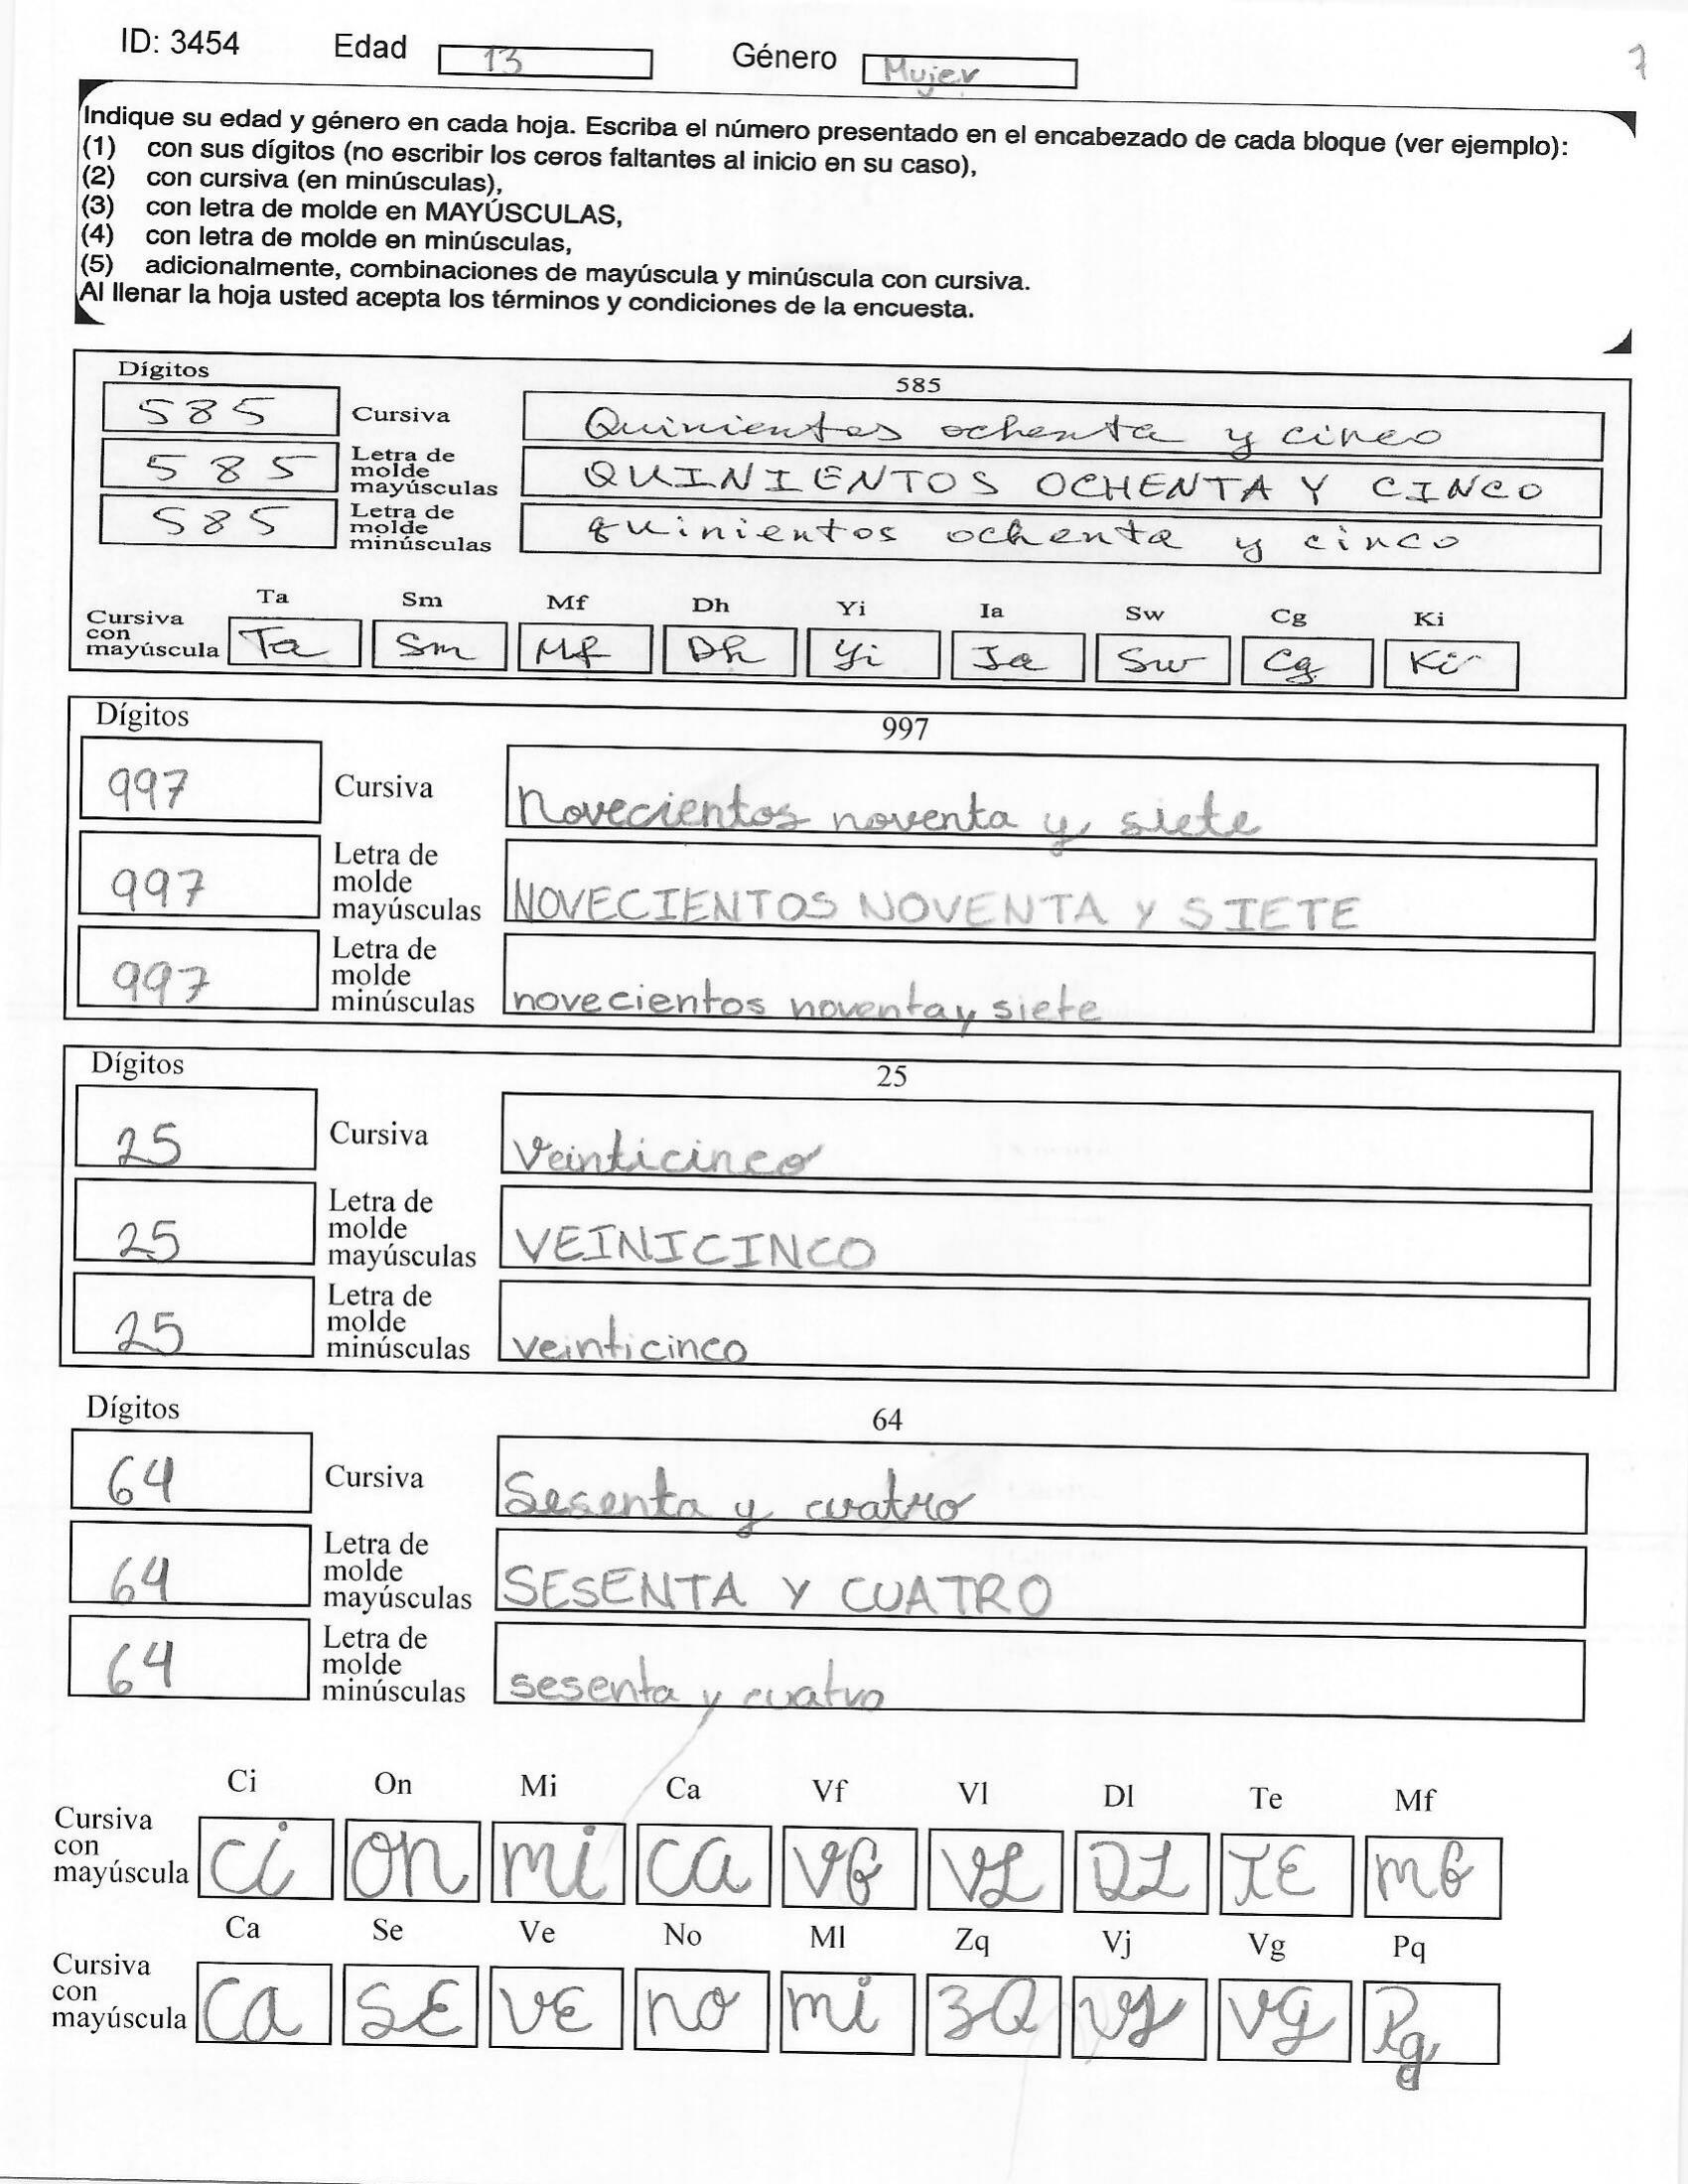 ID: 3454 Edad 13 Género Mujer 7
Indique su edad y género en cada hoja. Escriba el número presentado en el encabezado de cada bloque (ver ejemplo):
(1) con sus dígitos (no escribir los ceros faltantes al inicio en su caso),
(2) con cursiva (en minúsculas),
(3) con letra de molde en MAYÚSCULAS,
(4) con letra de molde en minúsculas,
(5) adicionalmente, combinaciones de mayúscula y minúscula con cursiva.
Al llenar la hoja usted acepta los términos y condiciones de la encuesta.
Dígitos 585
585 Cursiva Quinientos ochenta y cinco
585 Letra de molde mayúsculas QUINIENTOS OCHENTA Y CINCO
585 Letra de molde minúsculas quinientos ochenta y cinco
Ta Sm Mf Dh Yi Ia Sw Cg Ki
Cursiva con mayúscula Ta Sm Mf Dh Yi Ia Sw Cg Ki
Dígitos 997
997 Cursiva Novecientos noventa y siete
997 Letra de molde mayúsculas NOVECIENTOS NOVENTA Y SIETE
997 Letra de molde minúsculas novecientos noventa y siete
Dígitos 25
25 Cursiva Veinticinco
25 Letra de molde mayúsculas VEINICINCO
25 Letra de molde minúsculas veinticinco
Dígitos 64
64 Cursiva Sesenta y cuatro
64 Letra de molde mayúsculas SESENTA Y CUATRO
64 Letra de molde minúsculas sesenta y cuatro
Ci On Mi Ca Vf Vl Dl Te Mf
Cursiva con mayúscula Ci On mi CA Vf VL DL TE mf
Ca Se Ve No Ml Zq Vj Vg Pq
Cursiva con mayúscula CA SE VE no mi ZQ VJ Vg Pq